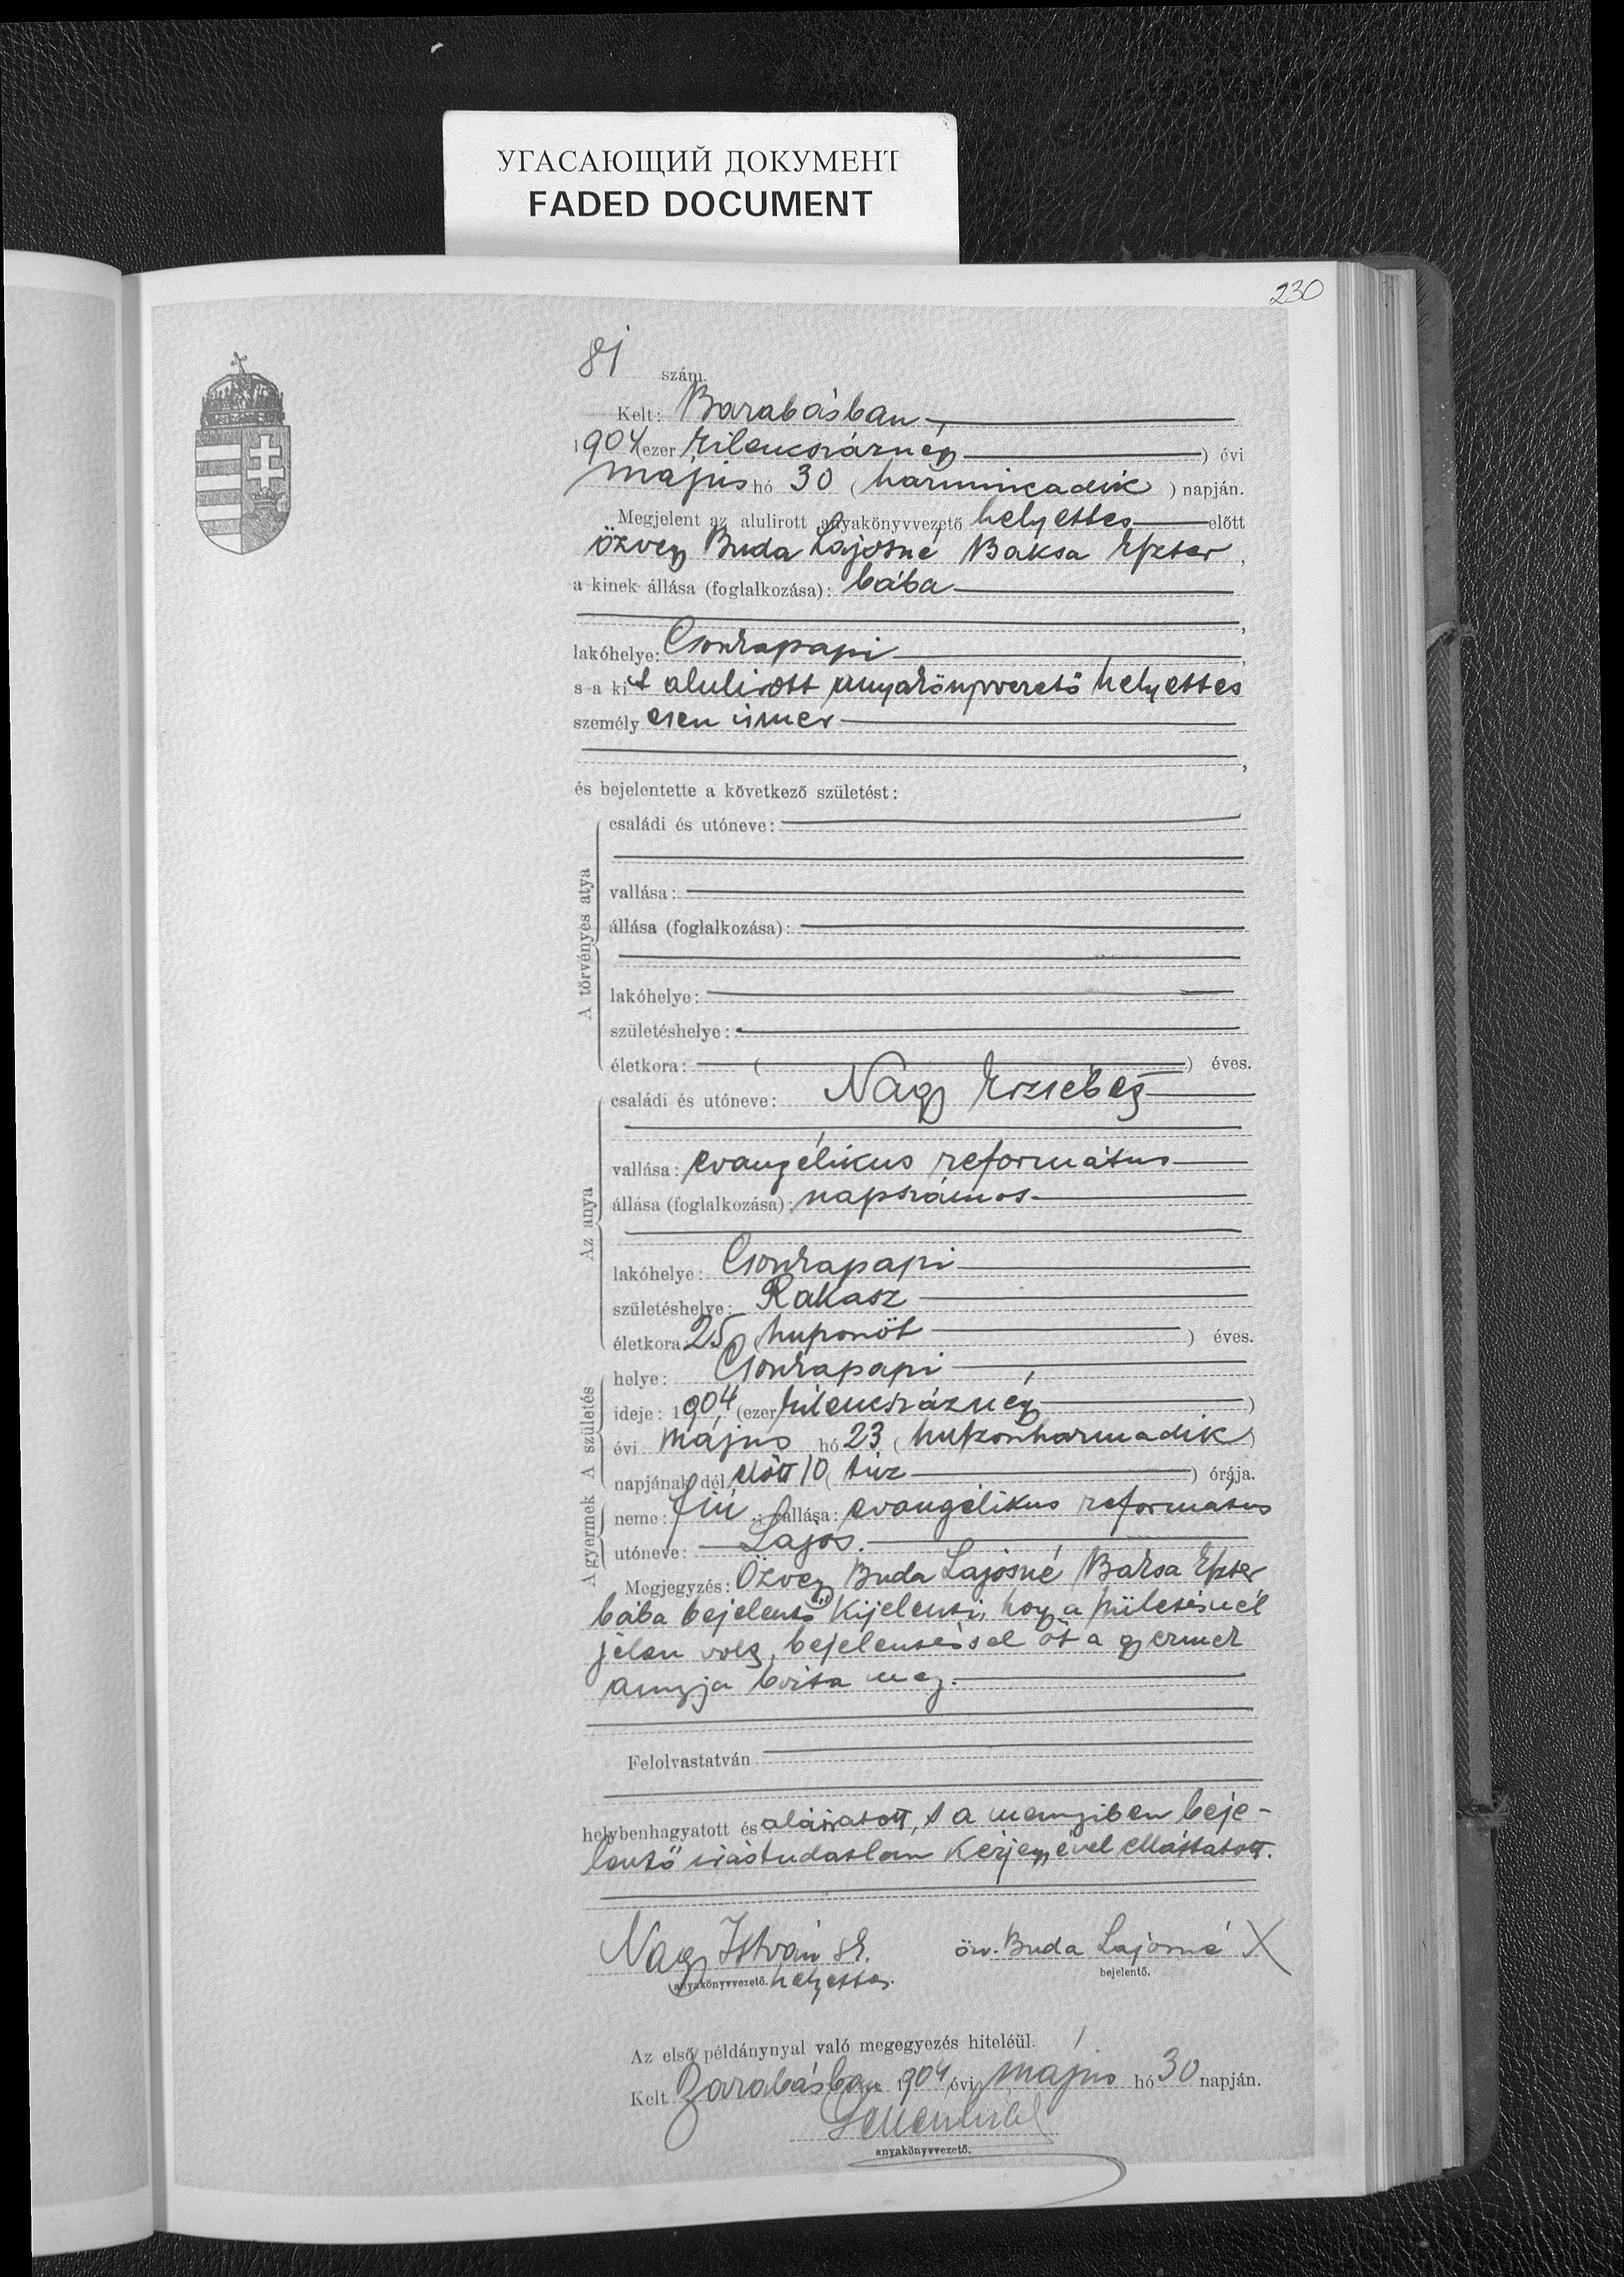 УГАСАЮЩИЙ ДОКУМЕНТ
FADED DOCUMENT
230
81 szám.
Kelt: Barabásban,
1904 (ezer kilencszáznégy) évi
május hó 30 (harminczadik) napján.
Megjelent az alulirott anyakönyvvezető helyettes előtt
özvegy Buda Lajosné Baksa Eszter,
a kinek állása (foglalkozása): bába
lakóhelye: Csonkapapi,
s a kit alulirott anyakönyvvezető helyettes
személyesen ismer
,
és bejelentette a következő születést:
A törvényes atya
családi és utóneve:
vallása:
állása (foglalkozása):
lakóhelye:
születéshelye:
életkora: ( ) éves.
Az anya
családi és utóneve: Nagy Erzsébet
vallása: evangélikus református
állása (foglalkozása): napszámos
lakóhelye: Csonkapapi
születéshelye: Rakasz
életkora: 25 (huszonöt) éves.
A születés
helye: Csonkapapi
ideje: 1904 (ezer kilencszáznégy)
évi május hó 23 (huszonharmadik)
napjának dél előtt 10 (tíz) órája.
A gyermek
neme: fiú; vallása: evangélikus református
utóneve: Lajos.
Megjegyzés: Özvegy Buda Lajosné Baksa Eszter
bába bejelentő kijelenti, hogy a születésnél
jelen volt, bejelentéssel őt a gyermek
anyja bízta meg.
Felolvastatván
helybenhagyatott és aláíratott, s a mennyiben beje-
lentő írástudatlan kézjegyével elláttatott.
Nagy István sk. özv. Buda Lajosné X
anyakönyvvezető. helyettes. bejelentő.
Az első példánynyal való megegyezés hiteléül.
Kelt Barabásban 1904 évi május hó 30 napján.
anyakönyvvezető.